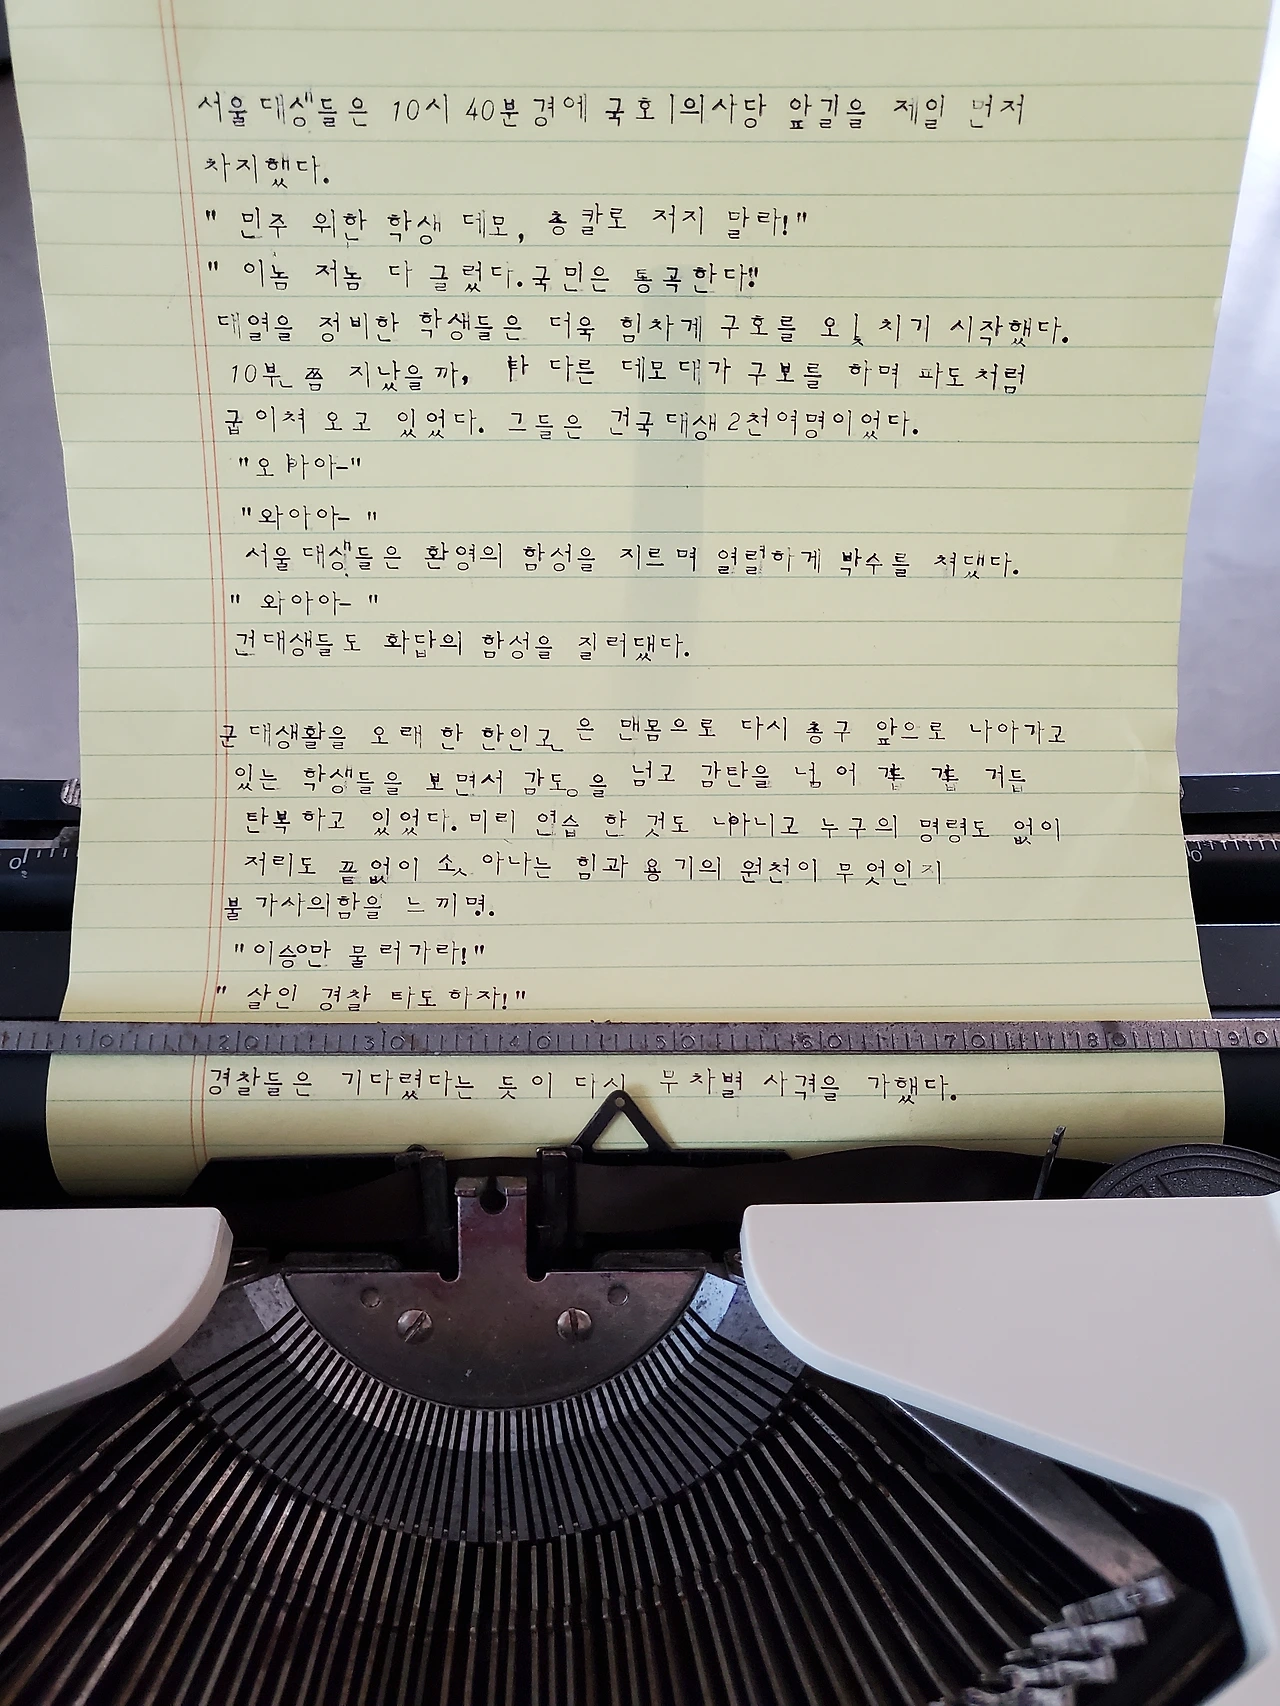 서울대생들은 10시 40분경에 국호ㅣ의사당 앞길을 제일 먼저
차지했다.
" 민주 위한 학생 데모, 총칼로 저지 말라!"
" 이놈 저놈 다 글렀다. 국민은 통곡한다!"
대열을 정비한 학생들은 더욱 힘차게 구호를 치기 시작했다.
10분쯤 지났을까, 다른 데모대가 구보를 하며 파도처럼
굽이쳐 오고 있었다. 그들은 건국대생 2천여명이었다.
"와아아-"
서울대생들은 환영의 함성을 지르며 열렬하게 박수를 쳐댔다.
" 와아아- "
건대생들도 화답의 함성을 질러댔다.
군대생활을 오래 한 한인고 은 맨몸으로 다시 총구 앞으로 나아가고
있는 학생들을 보면서 감도ㅇ을 넘고 감탄을 넘어 거듭
탄복하고 있었다. 미리 연습 한 것도 아니고 누구의 명령도 없이
저리도 끝없이 아나는 힘과 용기의 원천이 무엇인지
불가사의함을 느끼명.
"이승만 물러가라!"
" 살인 경찰 타도하자!"
10 20 30 40 50 60 70 80 90
경찰들은 기다렸다는 듯이 다시 무차별 사격을 가했다.